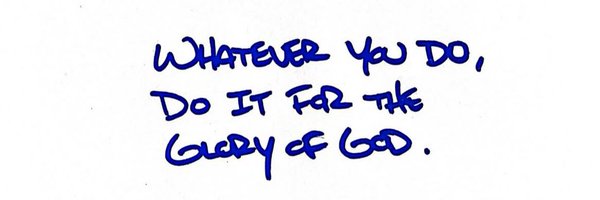 WHATEVER YOU DO,
DO IT FOR THE
GLORY OF GOD.